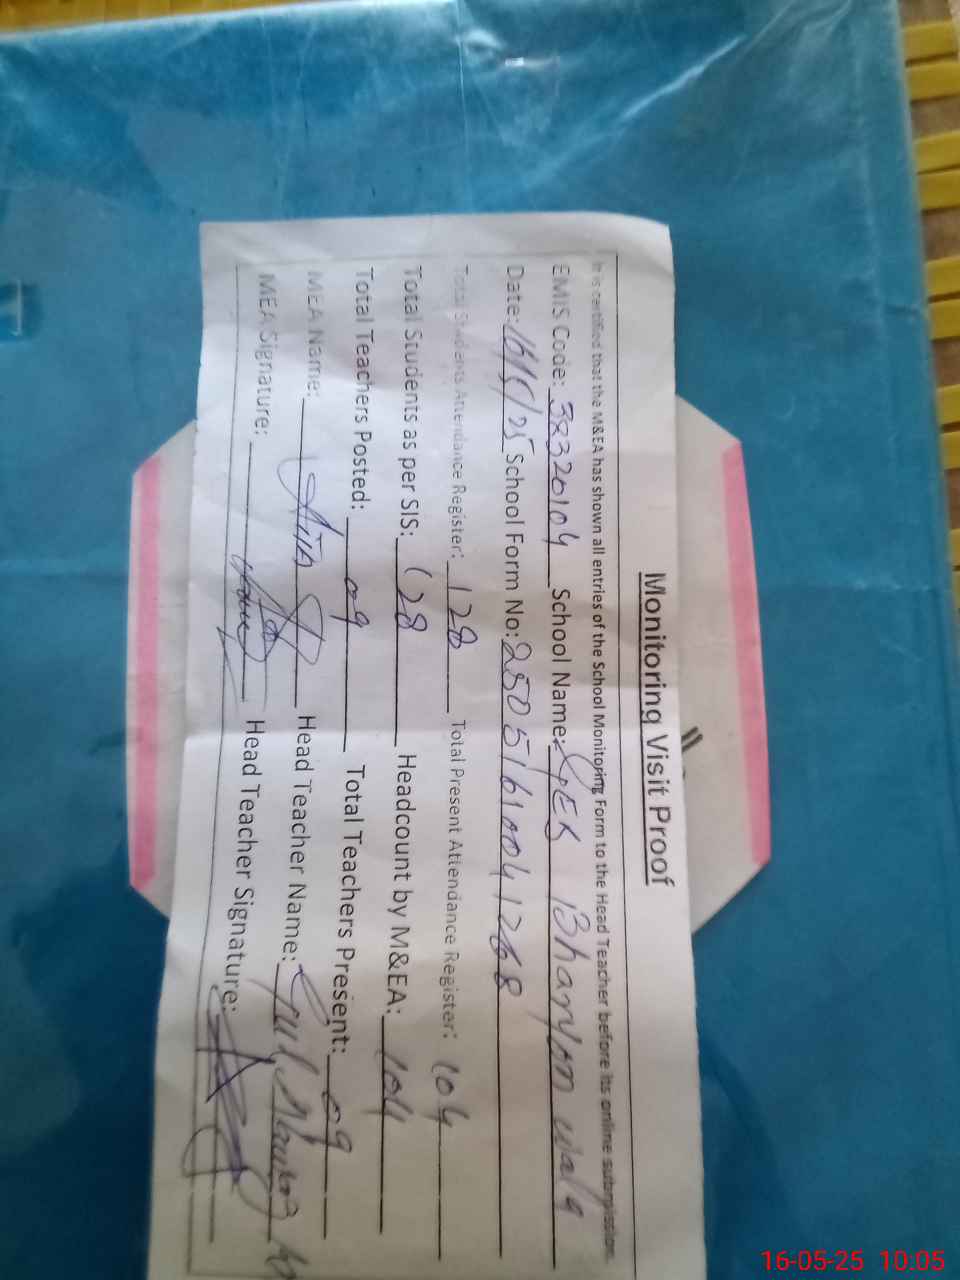 Monitoring Visit Proof
It is certified that the M&EA has shown all entries of the School Monitoring Form to the Head Teacher before its online submission.
EMIS Code: 38332104 School Name: GES Bharyan wala
Date: 16/5/25 School Form No: 25051610041268
Total Students Attendance Register: 128 Total Present Attendance Register: 104
Total Students as per SIS: 128 Headcount by M&EA: 104
Total Teachers Posted: 09 Total Teachers Present: 09
MEA Name: Head Teacher Name: Gul
MEA Signature: Head Teacher Signature:
16-05-25 10:05